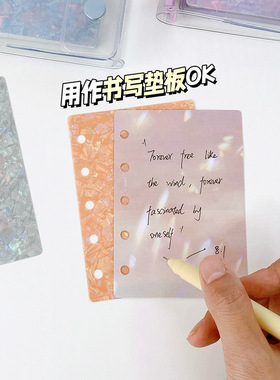 用作书写垫板OK
" Forever free like
the wind, forever
fascinated by
oneself "
—— 8.1